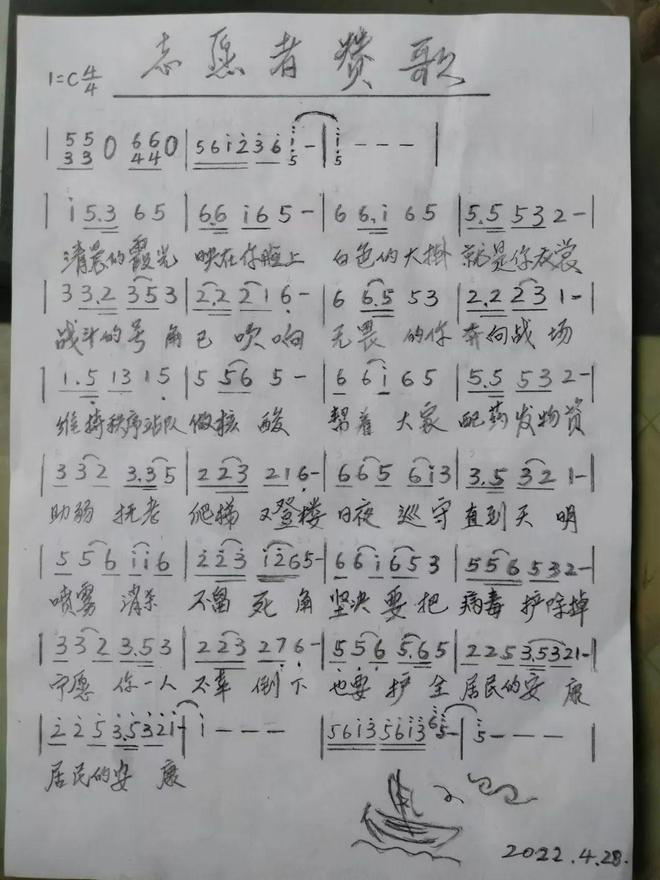 志愿者赞歌
1=C 4/4
| 55 33 0 66 44 0 | 5 6 1 2 3 6 i 5 - | i 5 - - - |
| i 5.3 6 5 | 6.6 i 6 5 - | 6 6.i 6 5 | 5.5 5 3 2 - |
清晨的霞光 映在你脸上 白色的大褂 就是你衣裳
| 3 3.2 3 5 3 | 2.2 2 1 6 - | 6 6.5 5 3 | 2.2 2 3 1 - |
战斗的号角已吹响 无畏的你奔向战场
| 1.5 1 3 1 5 | 5 5 6 5 - | 6 6 i 6 5 | 5.5 5 3 2 - |
维持秩序站队做核酸 帮着大家配药发物资
| 3 3 2 3.3 5 | 2 2 3 2 1 6 - | 6 6 5 6 i 3 | 3.5 3 2 1 - |
助弱扶老 爬梯又登楼 日夜巡守直到天明
| 5 5 6 i i 6 | 2 2 3 i 2 6 5 - | 6 6 i 6 5 3 | 5 5 6 5 3 2 - |
喷雾消杀 不留死角 坚决要把病毒铲除掉
| 3 3 2 3.5 3 | 2 2 3 2 7 6 - | 5 5 6 5.6 5 | 2 2 5 3.5 3 2 1 - |
宁愿你一人不幸倒下 也要护全居民的安康
| 2 2 5 3.5 3 2 i - | i - - - | 5 6 i 3 5 6 i 3 6 5 - | 5 - - - |
居民的安康
2022.4.28.